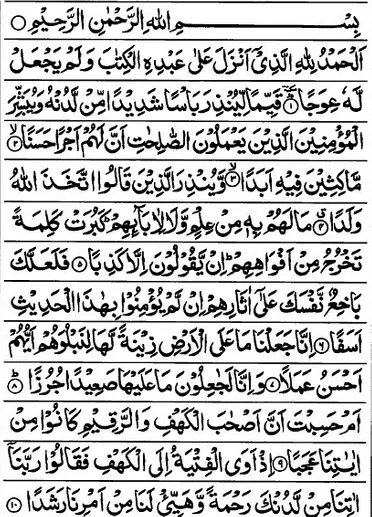 بِسْمِ اللهِ الرَّحْمٰنِ الرَّحِيْمِ ○
اَلْحَمْدُ لِلّٰهِ الَّذِيْٓ اَنْزَلَ عَلٰى عَبْدِهِ الْكِتٰبَ وَلَمْ يَجْعَلْ
لَّهٗ عِوَجًا ۜ﴿١﴾ قَيِّمًا لِّيُنْذِرَ بَاْسًا شَدِيْدًا مِّنْ لَّدُنْهُ وَيُبَشِّرَ
الْمُؤْمِنِيْنَ الَّذِيْنَ يَعْمَلُوْنَ الصّٰلِحٰتِ اَنَّ لَهُمْ اَجْرًا حَسَنًا ۙ﴿٢﴾
مَّاكِثِيْنَ فِيْهِ اَبَدًا ۙ﴿٣﴾ وَّيُنْذِرَ الَّذِيْنَ قَالُوا اتَّخَذَ اللهُ
وَلَدًا ۗ﴿٤﴾ مَا لَهُمْ بِهٖ مِنْ عِلْمٍ وَّلَا لِاٰبَآئِهِمْ ۭ كَبُرَتْ كَلِمَةً
تَخْرُجُ مِنْ اَفْوَاهِهِمْ ۭ اِنْ يَّقُوْلُوْنَ اِلَّا كَذِبًا ﴿٥﴾ فَلَعَلَّكَ
بَاخِعٌ نَّفْسَكَ عَلٰٓى اٰثَارِهِمْ اِنْ لَّمْ يُؤْمِنُوْا بِهٰذَا الْحَدِيْثِ
اَسَفًا ﴿٦﴾ اِنَّا جَعَلْنَا مَا عَلَى الْاَرْضِ زِيْنَةً لَّهَا لِنَبْلُوَهُمْ اَيُّهُمْ
اَحْسَنُ عَمَلًا ﴿٧﴾ وَاِنَّا لَجٰعِلُوْنَ مَا عَلَيْهَا صَعِيْدًا جُرُزًا ۭ﴿٨﴾
اَمْ حَسِبْتَ اَنَّ اَصْحٰبَ الْكَهْفِ وَالرَّقِيْمِ كَانُوْا مِنْ
اٰيٰتِنَا عَجَبًا ﴿٩﴾ اِذْ اَوَى الْفِتْيَةُ اِلَى الْكَهْفِ فَقَالُوْا رَبَّنَآ
اٰتِنَا مِنْ لَّدُنْكَ رَحْمَةً وَّهَيِّئْ لَنَا مِنْ اَمْرِنَا رَشَدًا ﴿١٠﴾